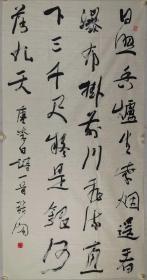 日照香爐生紫烟遥看
瀑布掛前川飛流直
下三千尺疑是銀河
落九天 唐李白詩一首